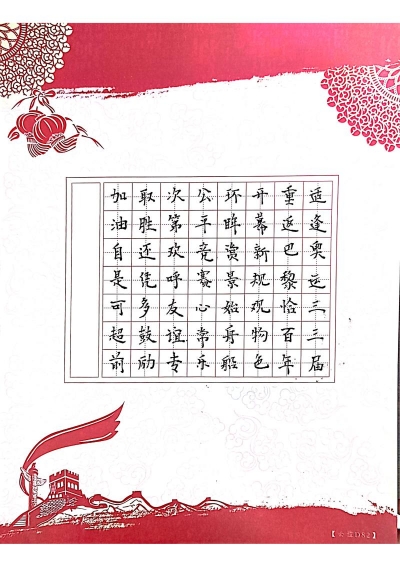 适逢奥运三三届
重返巴黎恰百年
开幕新规观物色
环眸赏景始舟船
公平竞赛心常乐
次第欢呼友谊专
取胜还凭多鼓励
加油自是可超前